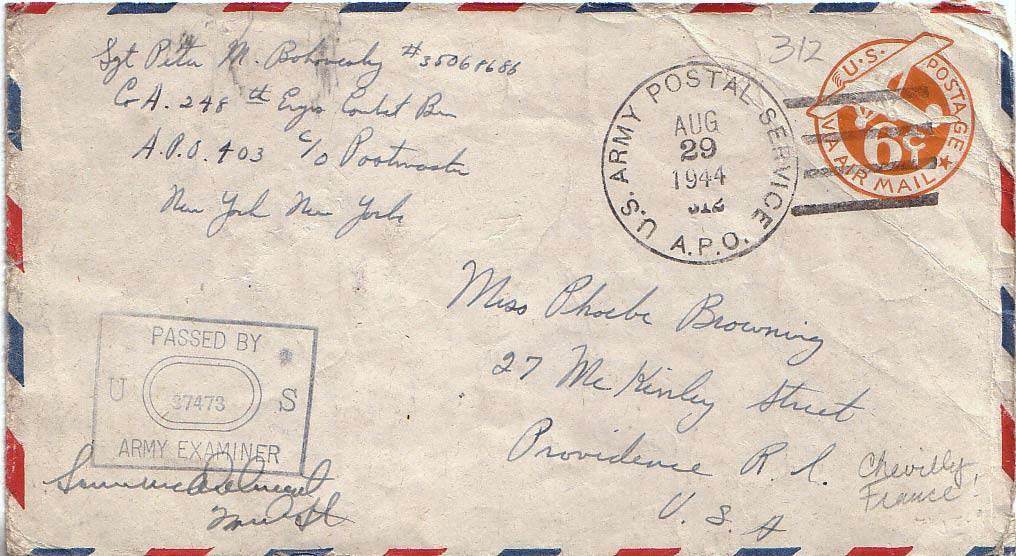 Sgt Peter M. #35068686
Co A. 248th Engrs Combat Bn
A.P.O. 403 c/o Postmaster
New York New York
312
U.S. POSTAGE
6¢
VIA AIR MAIL
U.S. ARMY POSTAL SERVICE
AUG
29
1944
312
A.P.O.
Miss Phoebe Browning
27 McKinley Street
Providence R. I.
U. S. A
Chevilly,
France!
PASSED BY
U 37473 S
ARMY EXAMINER